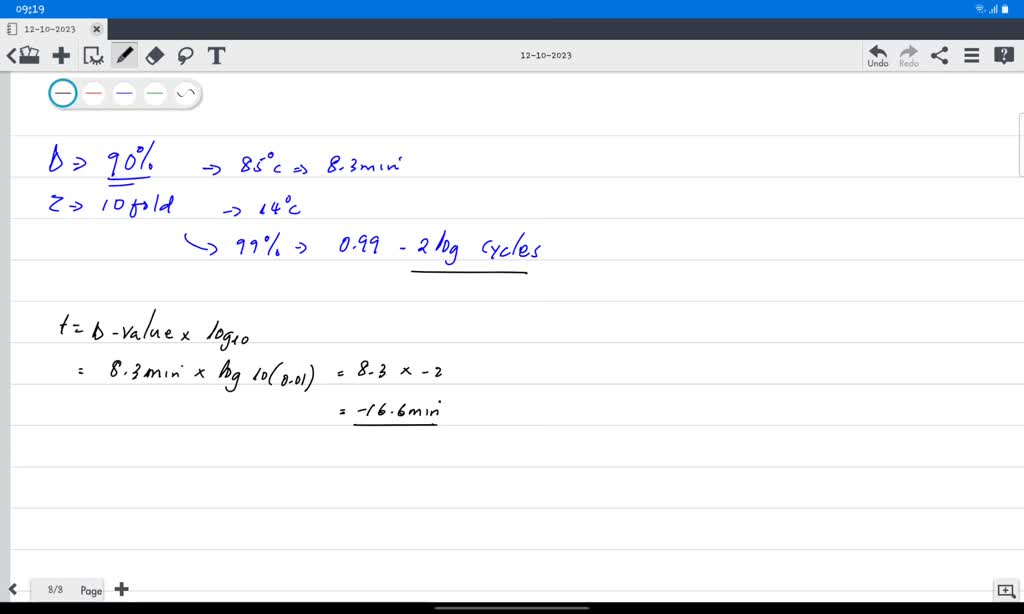 09:19
12-10-2023
T
12-10-2023
Undo
Redo
D => 90% -> 85°C => 8.3min
Z => 10 fold -> 14°C
-> 99% -> 0.99 - 2 log cycles
t = D-value x log10
= 8.3min x log 10(0.01) = 8.3 x -2
= -16.6min
8/8 Page